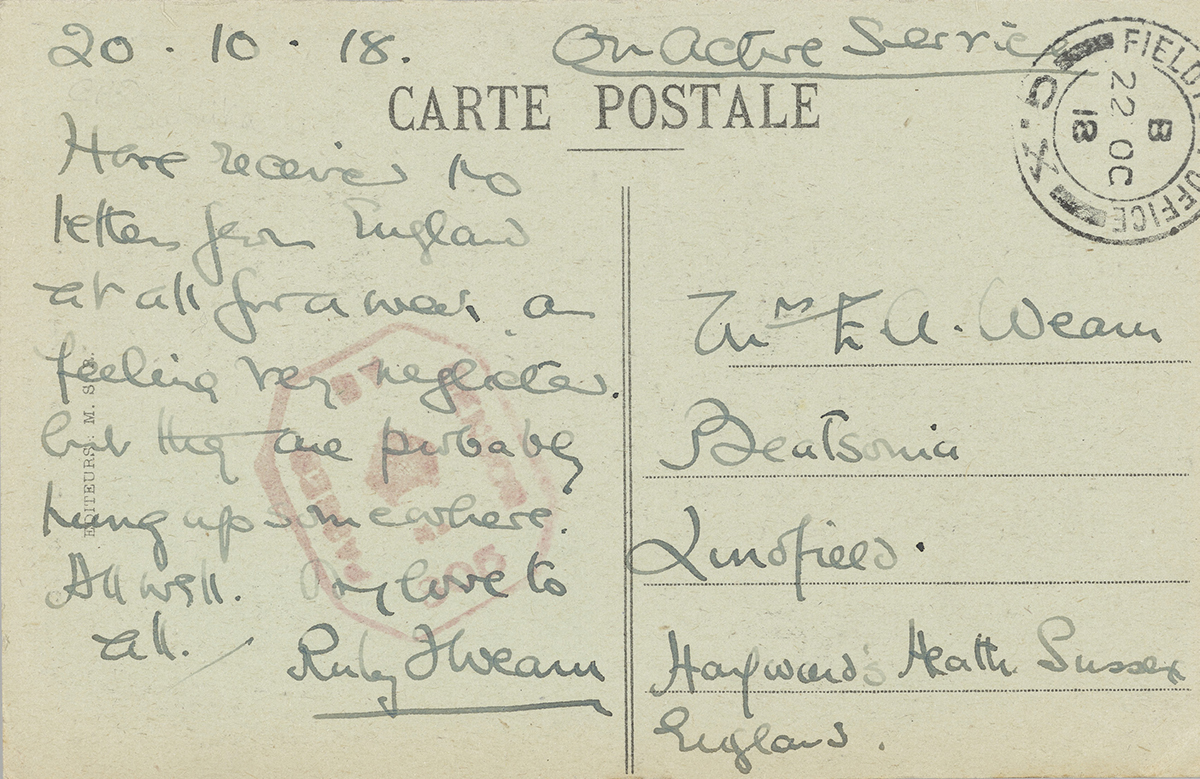 20 . 10 . 18.
On Active Service
CARTE POSTALE
FIELD POST OFFICE
G.X
B
22 OC
18
Have received no
letters from England
at all for a week, am
feeling very neglected.
but they are probably
hung up somewhere.
All well. My love to
all.
Ruby Weam
EDITEURS, M.
PASSED
CENSOR
Mrs E A. Weam
Beatsonia
Lindfield.
Hayward's Heath Sussex
England.